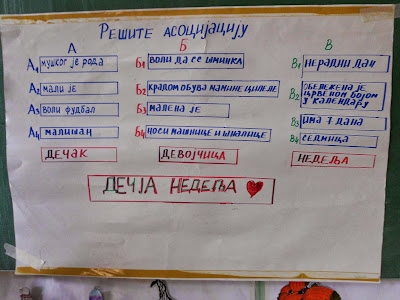 Решите асоцијацију
А Б В
А1 мушког је рода Б1 воли да се шминка В1 нерадни дан
А2 мали је Б2 крадом обува мамине ципеле В2 обележена је
црвеном бојом
у календару
А3 воли фудбал Б3 малена је В3 има 7 дана
А4 малишан Б4 носи машнице и шналице В4 седмица
дечак девојчица недеља
ДЕЧЈА НЕДЕЉА